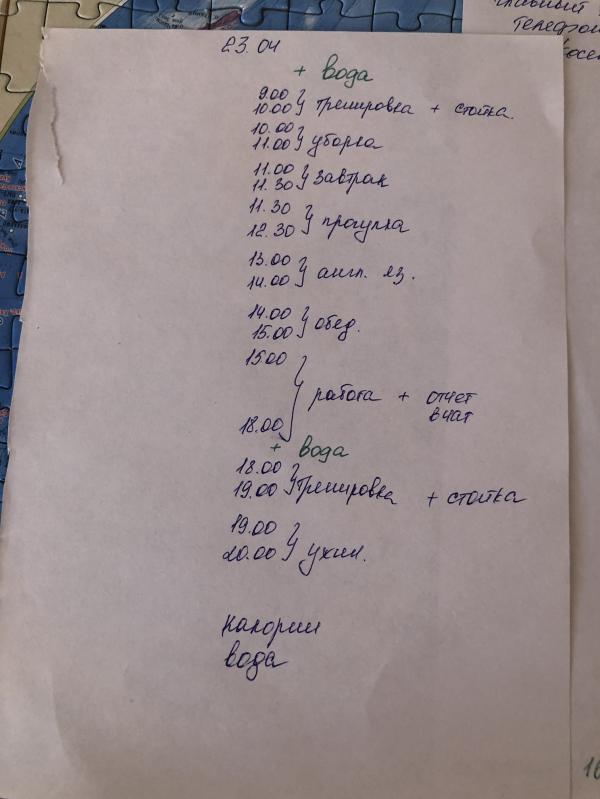 Телефон
23.04
+ вода
9.00
10.00 } тренировка + стойка.
10.00
11.00 } уборка
11.00
11.30 } завтрак
11.30
12.30 } прогулка
13.00
14.00 } англ. яз.
14.00
15.00 } обед.
15.00
} работа + отчет
в чат
18.00
+ вода
18.00
19.00 } тренировка + стойка
19.00
20.00 } ужин.
калории
вода